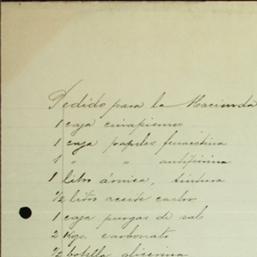 Pedido para la Hacienda
1 caja
1 caja papeles
1 " "
1 litro árnica, tintura
1/2 litro aceite
1 caja purgas de sal
2 Kgs carbonato
1/2 botella glicerina